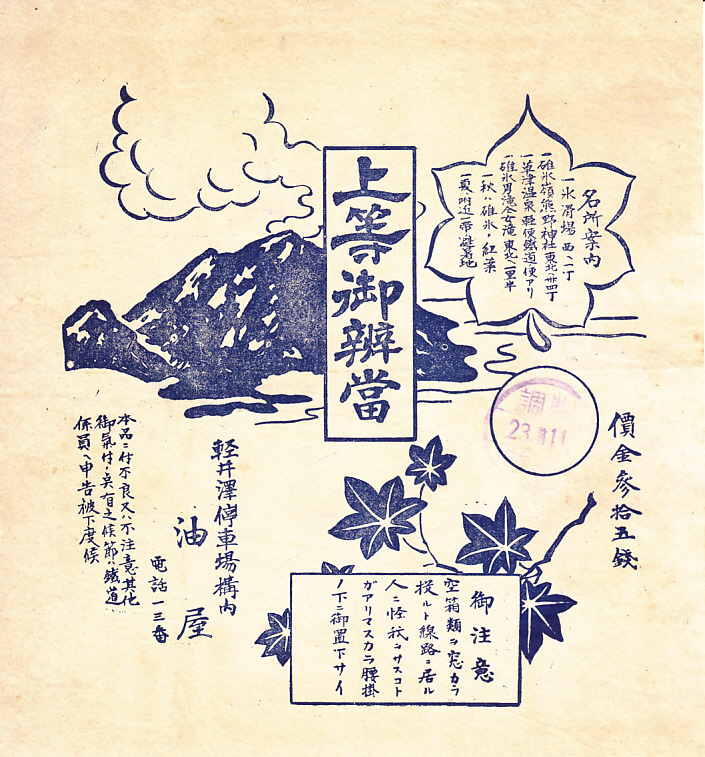 名所案内
一氷滑場 西ヘ一丁
一碓氷嶺熊野神社東北ヘ卅四丁
一草津温泉軽便鐵道便アリ
一碓氷男滝仝女滝東北ヘ一里半
一秋ハ碓氷ノ紅葉
一夏ハ附近一帯ノ避暑地
上等御辨當
價金参拾五錢
調
23 11
軽井澤停車場構内
油屋
電話一三番
本品ニ付不良又ハ不注意其他
御氣付ノ臭有之候節ハ鐵道
係員ヘ申告被下度候
御注意
空箱類ヲ窓カラ
投ルト線路ニ居ル
人ニ怪我ヲサスコト
ガアリマスカラ腰掛
ノ下ニ御置下サイ